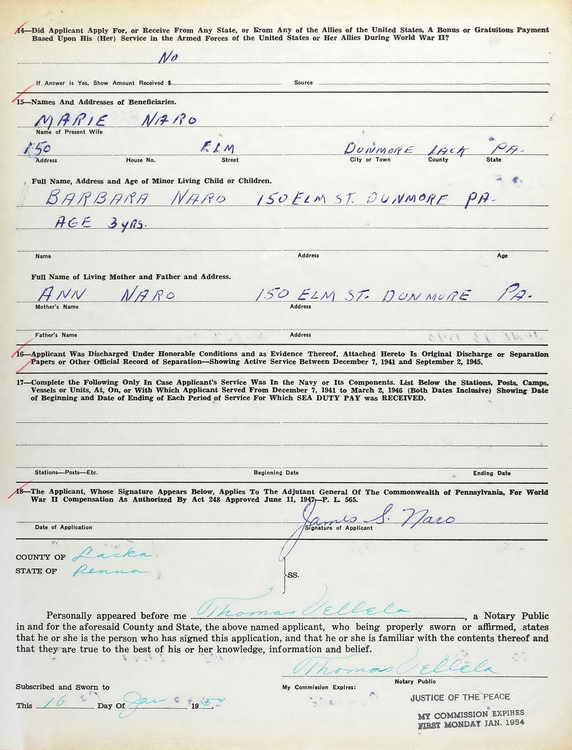 14—Did Applicant Apply For, or Receive From Any State, or From Any of the Allies of the United States, A Bonus or Gratuitous Payment
Based Upon His (Her) Service in the Armed Forces of the United States or Her Allies During World War II?
No
If Answer is Yes, Show Amount Received $ Source
15—Names And Addresses of Beneficiaries.
MARIE NARO
Name of Present Wife
150 ELM DUNMORE LACK PA.
Address House No. Street City or Town County State
Full Name, Address and Age of Minor Living Child or Children.
BARBARA NARO 150 ELM ST. DUNMORE PA.
AGE 3 yrs.
Name Address Age
Full Name of Living Mother and Father and Address.
ANN NARO 150 ELM ST. DUNMORE PA.
Mother's Name Address
Father's Name Address
16—Applicant Was Discharged Under Honorable Conditions and as Evidence Thereof, Attached Hereto Is Original Discharge or Separation
Papers or Other Official Record of Separation—Showing Active Service Between December 7, 1941 and September 2, 1945.
17—Complete the Following Only In Case Applicant's Service Was In the Navy or Its Components. List Below the Stations, Posts, Camps,
Vessels or Units, At, On, or With Which Applicant Served From December 7, 1941 to March 2, 1946 (Both Dates Inclusive) Showing Date
of Beginning and Date of Ending of Each Period of Service For Which SEA DUTY PAY was RECEIVED.
Stations—Posts—Etc. Beginning Date Ending Date
18—The Applicant, Whose Signature Appears Below, Applies To The Adjutant General Of The Commonwealth of Pennsylvania, For World
War II Compensation As Authorized By Act 248 Approved June 11, 1947—P. L. 565.
James S. Naro
Date of Application Signature of Applicant
COUNTY OF Lacka
STATE OF Penna
SS.
Personally appeared before me Thomas Vellela, a Notary Public
in and for the aforesaid County and State, the above named applicant, who being properly sworn or affirmed, states
that he or she is the person who has signed this application, and that he or she is familiar with the contents thereof and
that they are true to the best of his or her knowledge, information and belief.
Thomas Vellela
Notary Public
Subscribed and Sworn to My Commission Expires:
JUSTICE OF THE PEACE
This 16 Day Of Jan 19
MY COMMISSION EXPIRES
FIRST MONDAY JAN. 1954